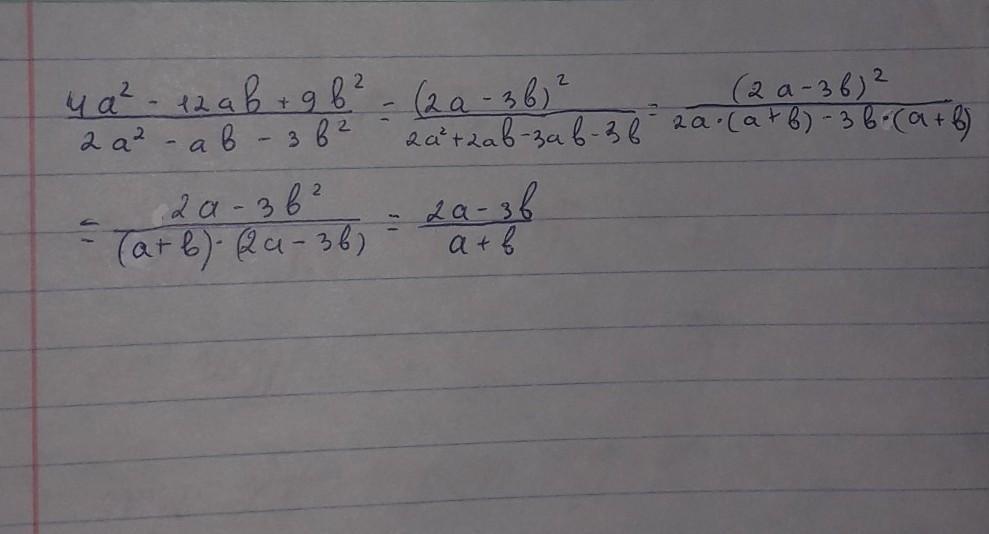 (4a² - 12ab + 9b²)/(2a² - ab - 3b²) = (2a - 3b)²/(2a² + 2ab - 3ab - 3b) = (2a - 3b)²/(2a·(a + b) - 3b·(a + b))
= (2a - 3b²)/((a + b)·(2a - 3b)) = (2a - 3b)/(a + b)